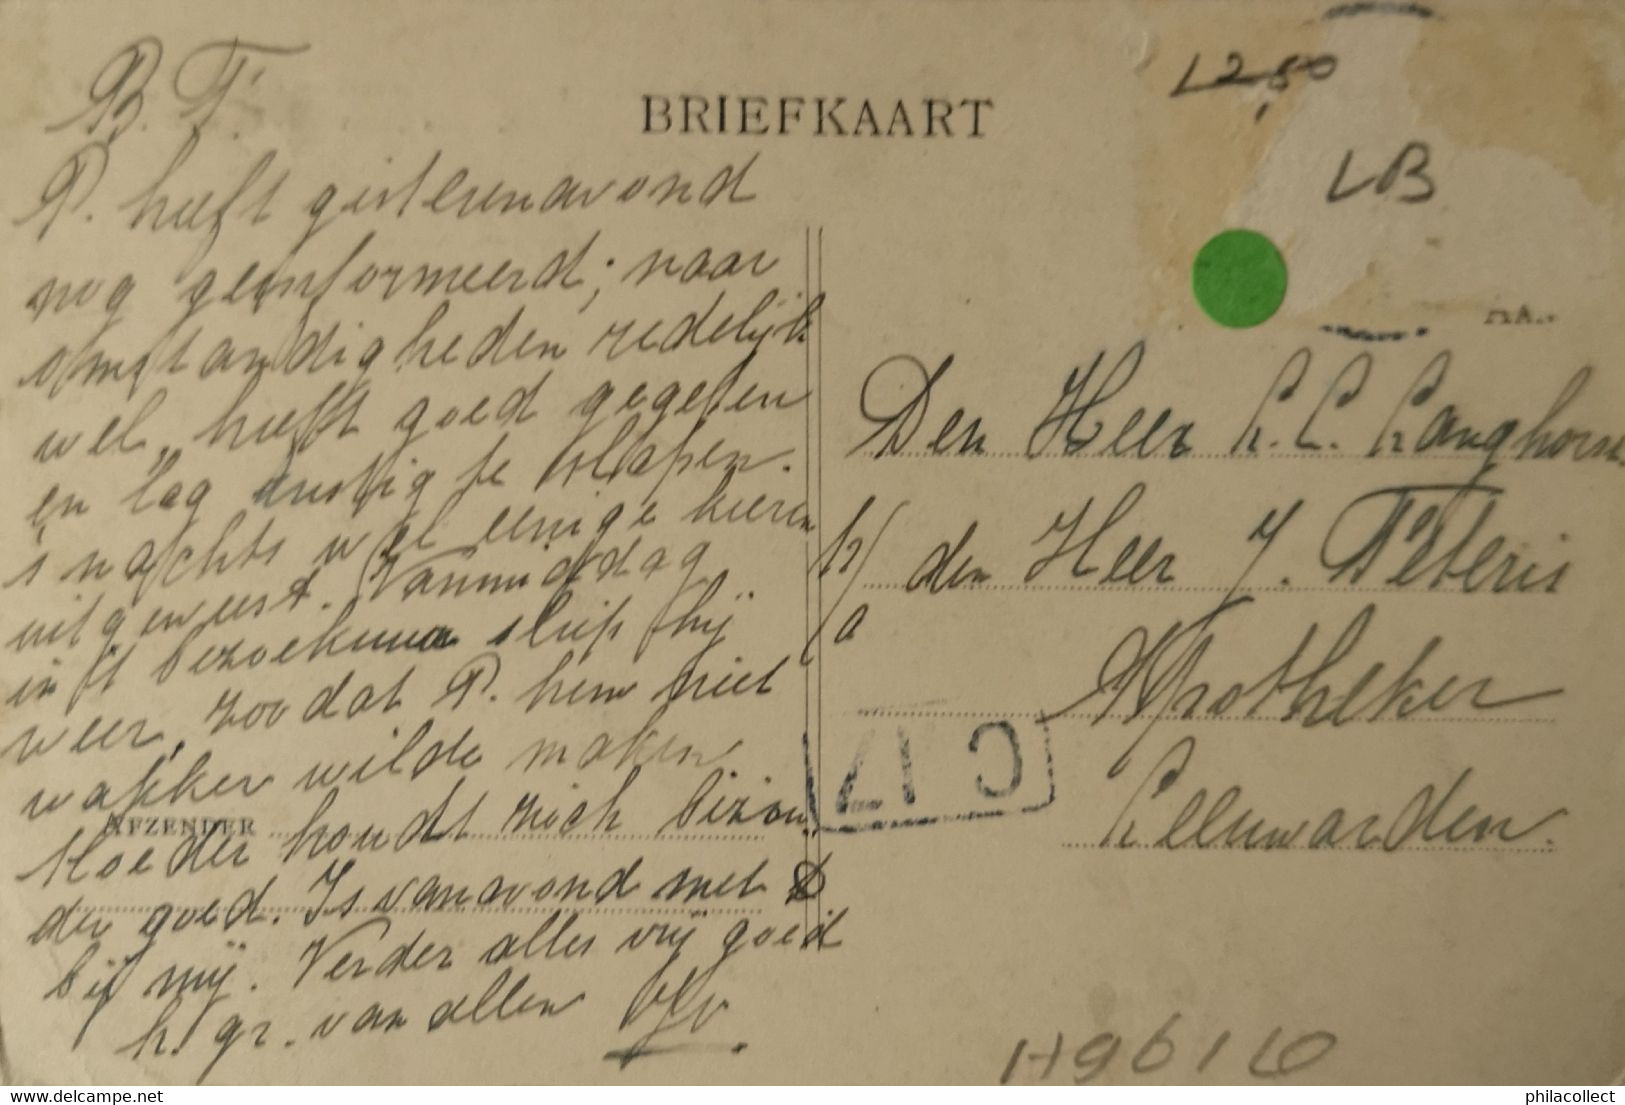 BRIEFKAART
B. F.
P. heeft gisterenavond
nog geinformeerd; naar
omstandigheden redelijk
wel, heeft goed gegeten
en lag rustig te slapen.
's nachts wel eenige keeren
uitgeweest. Vanmiddag
in 't bezoekuur sliep hij
weer, zoodat P. hem niet
wakker wilde maken.
Moeder houdt zich bizon
der goed. Is vanavond met D
bij mij. Verder alles vrij goed
h. gr. van allen
AFZENDER
L2,50
LB
AA
Den Heer L. L. Langhorst
p/a den Heer J. Peteris
Apotheker
Leeuwarden.
C 17
H9616
philacollect